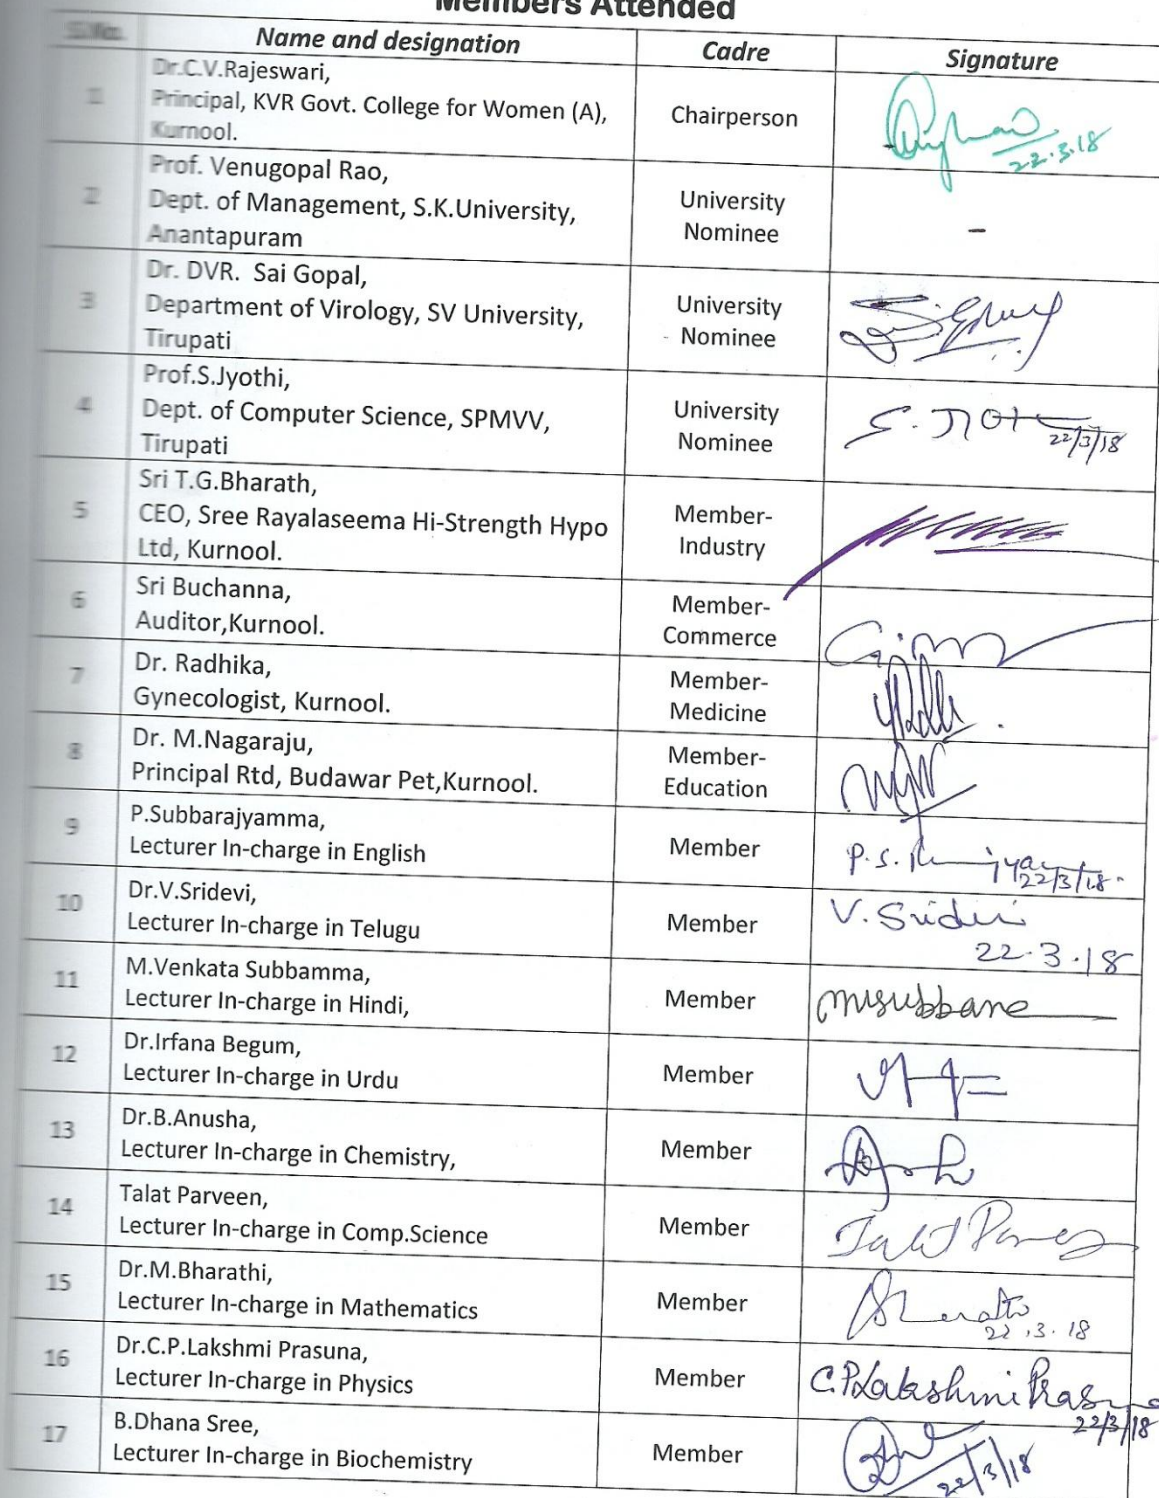 Members Attended
S.No. Name and designation Cadre Signature
1 Dr.C.V.Rajeswari,
Principal, KVR Govt. College for Women (A),
Kurnool.
Chairperson
22.3.18
2 Prof. Venugopal Rao,
Dept. of Management, S.K.University,
Anantapuram
University
Nominee
-
3 Dr. DVR. Sai Gopal,
Department of Virology, SV University,
Tirupati
University
Nominee
4 Prof.S.Jyothi,
Dept. of Computer Science, SPMVV,
Tirupati
University
Nominee
22/3/18
5 Sri T.G.Bharath,
CEO, Sree Rayalaseema Hi-Strength Hypo
Ltd, Kurnool.
Member-
Industry
6 Sri Buchanna,
Auditor,Kurnool.
Member-
Commerce
7 Dr. Radhika,
Gynecologist, Kurnool.
Member-
Medicine
8 Dr. M.Nagaraju,
Principal Rtd, Budawar Pet,Kurnool.
Member-
Education
9 P.Subbarajyamma,
Lecturer In-charge in English
Member
P.S.
22/3/18
10 Dr.V.Sridevi,
Lecturer In-charge in Telugu
Member
V. Sridevi
22.3.18
11 M.Venkata Subbamma,
Lecturer In-charge in Hindi,
Member
12 Dr.Irfana Begum,
Lecturer In-charge in Urdu
Member
13 Dr.B.Anusha,
Lecturer In-charge in Chemistry,
Member
14 Talat Parveen,
Lecturer In-charge in Comp.Science
Member
15 Dr.M.Bharathi,
Lecturer In-charge in Mathematics
Member
22.3.18
16 Dr.C.P.Lakshmi Prasuna,
Lecturer In-charge in Physics
Member
C.P.Lakshmi
22/3/18
17 B.Dhana Sree,
Lecturer In-charge in Biochemistry
Member
22/3/18